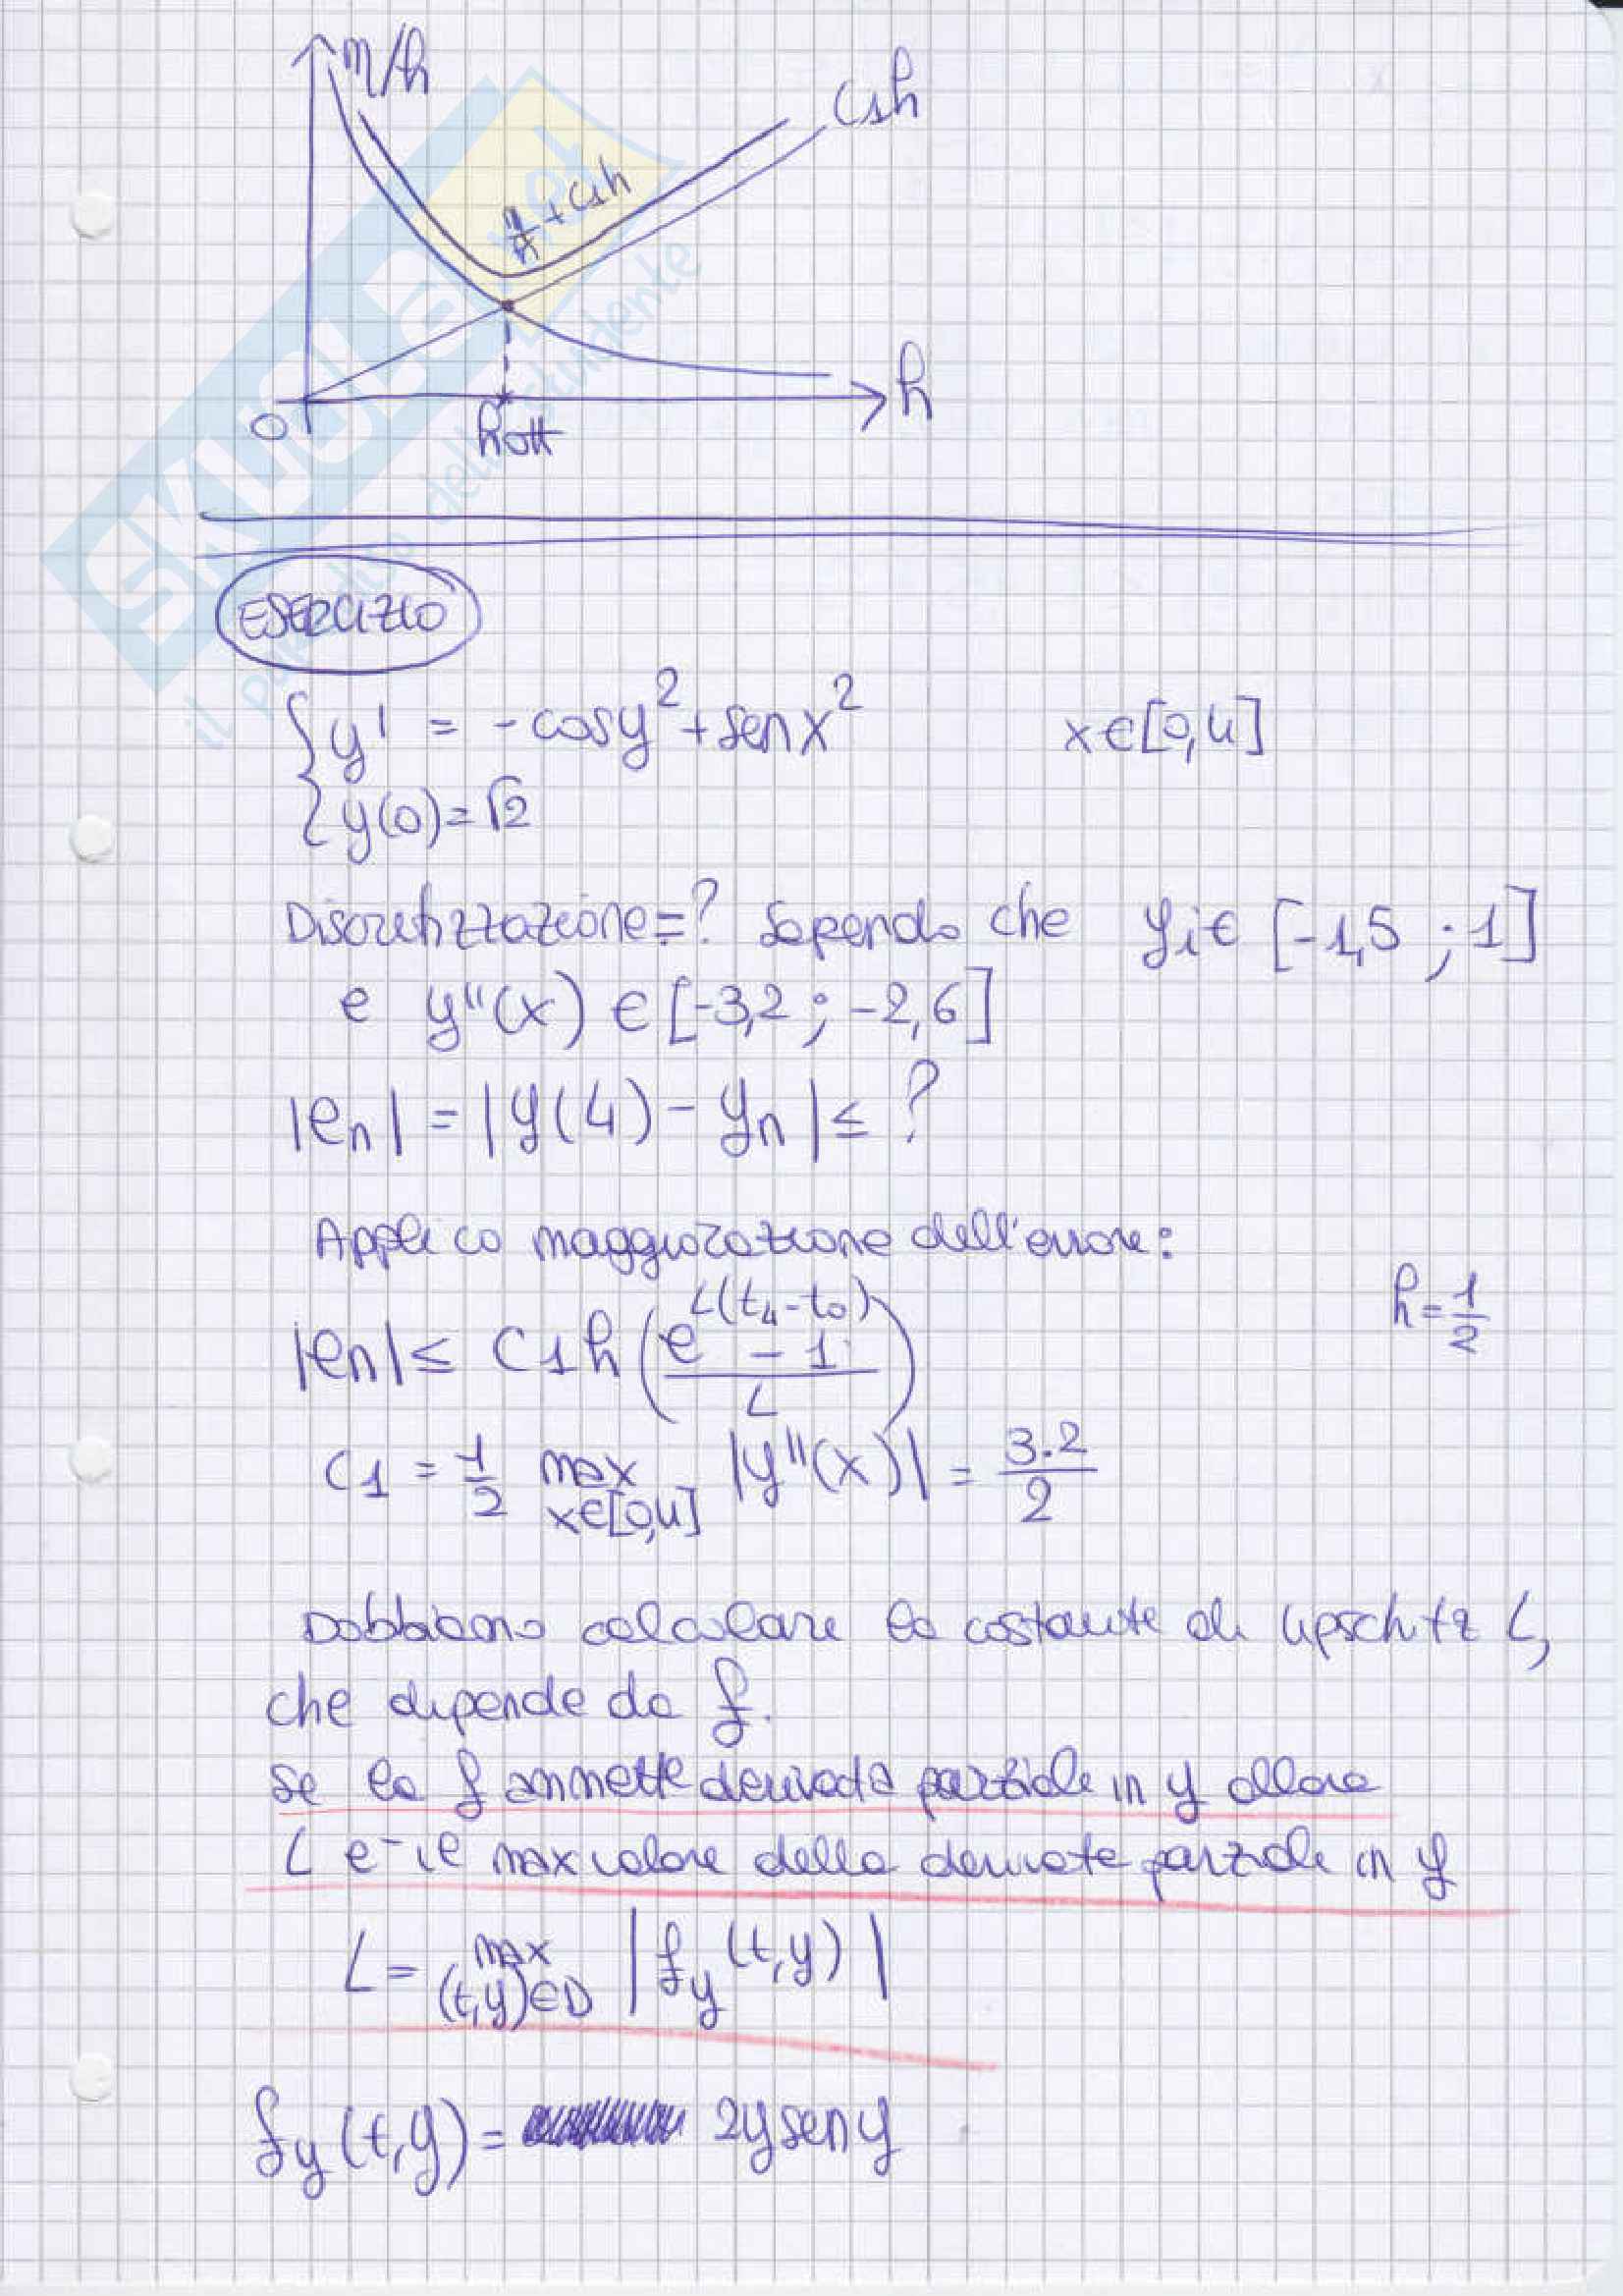 η/h
C1h
η/h + C1h
O
hott
h
SKUOLA.net
il paradiso dello studente
ESERCIZIO
{ y' = -cosy² + senx² x∈[0,4]
{ y(0)=√2
Discretizzazione=? Sapendo che yi∈ [-1,5 ; 1]
e y''(x) ∈ [-3,2 ; -2,6]
|en| = |y(4) - yn| ≤ ?
Applico maggiorazione dell'errore:
h=1/2
|en| ≤ C1h ((e^L(t4-t0) - 1)/L)
C1 = 1/2 max x∈[0,4] |y''(x)| = 3.2/2
Dobbiamo calcolare la costante di lipschitz L,
che dipende da f.
se la f ammette derivata parziale in y allora
L e- il max valore della derivata parziale in y
L = max (t,y)∈D |fy(t,y)|
fy(t,y) = 2yseny